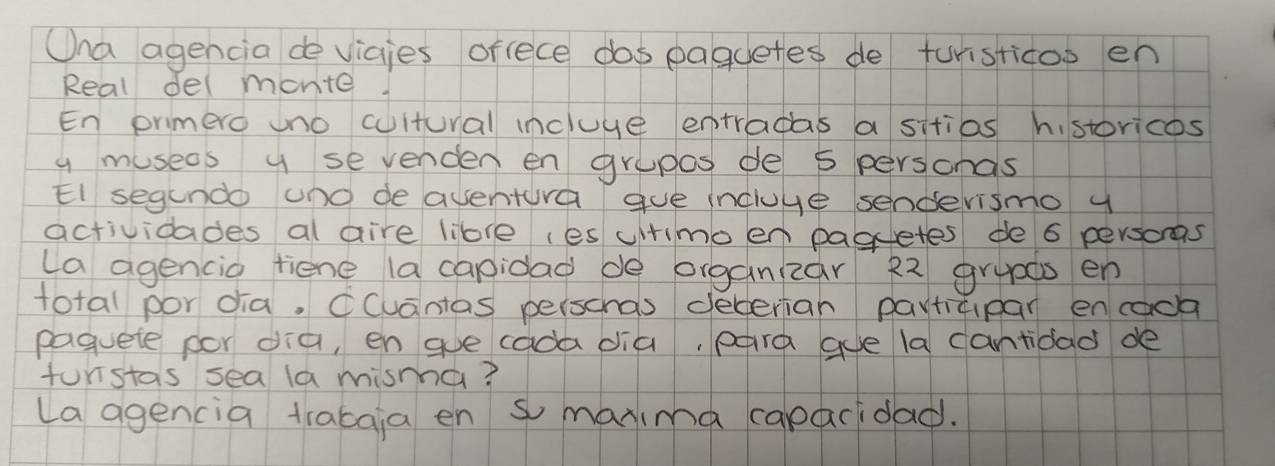 Una agencia de viajes ofrece dos paquetes de turisticos en
Real del monte.
En primero uno cultural incluye entradas a sitios historicos
y museos y se venden en grupos de 5 personas
El segundo uno de aventura que incluye senderismo y
actividades al aire libre, es ultimo en paquetes de 6 personas
La agencia tiene la capidad de organizar 22 grupos en
total por dia. ¿Cuántas personas deberian participar en cada
paquete por dia, en que cada dia, para que la cantidad de
turistas sea la misma?
La agencia trabaja en su maxima capacidad.